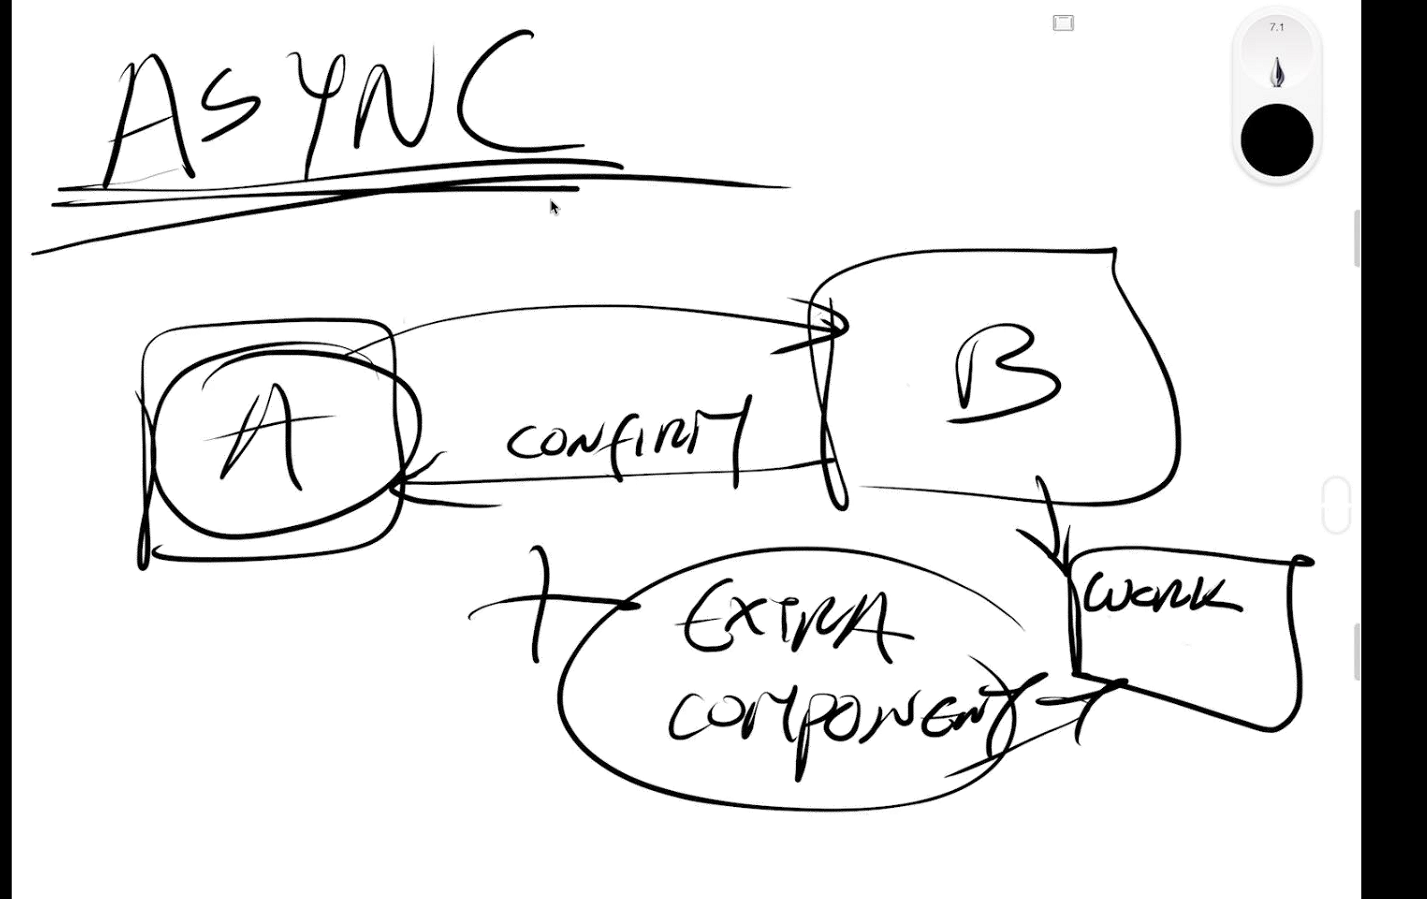 ASYNC
7.1
A
B
CONFIRM
WORK
EXTRA
COMPONENT